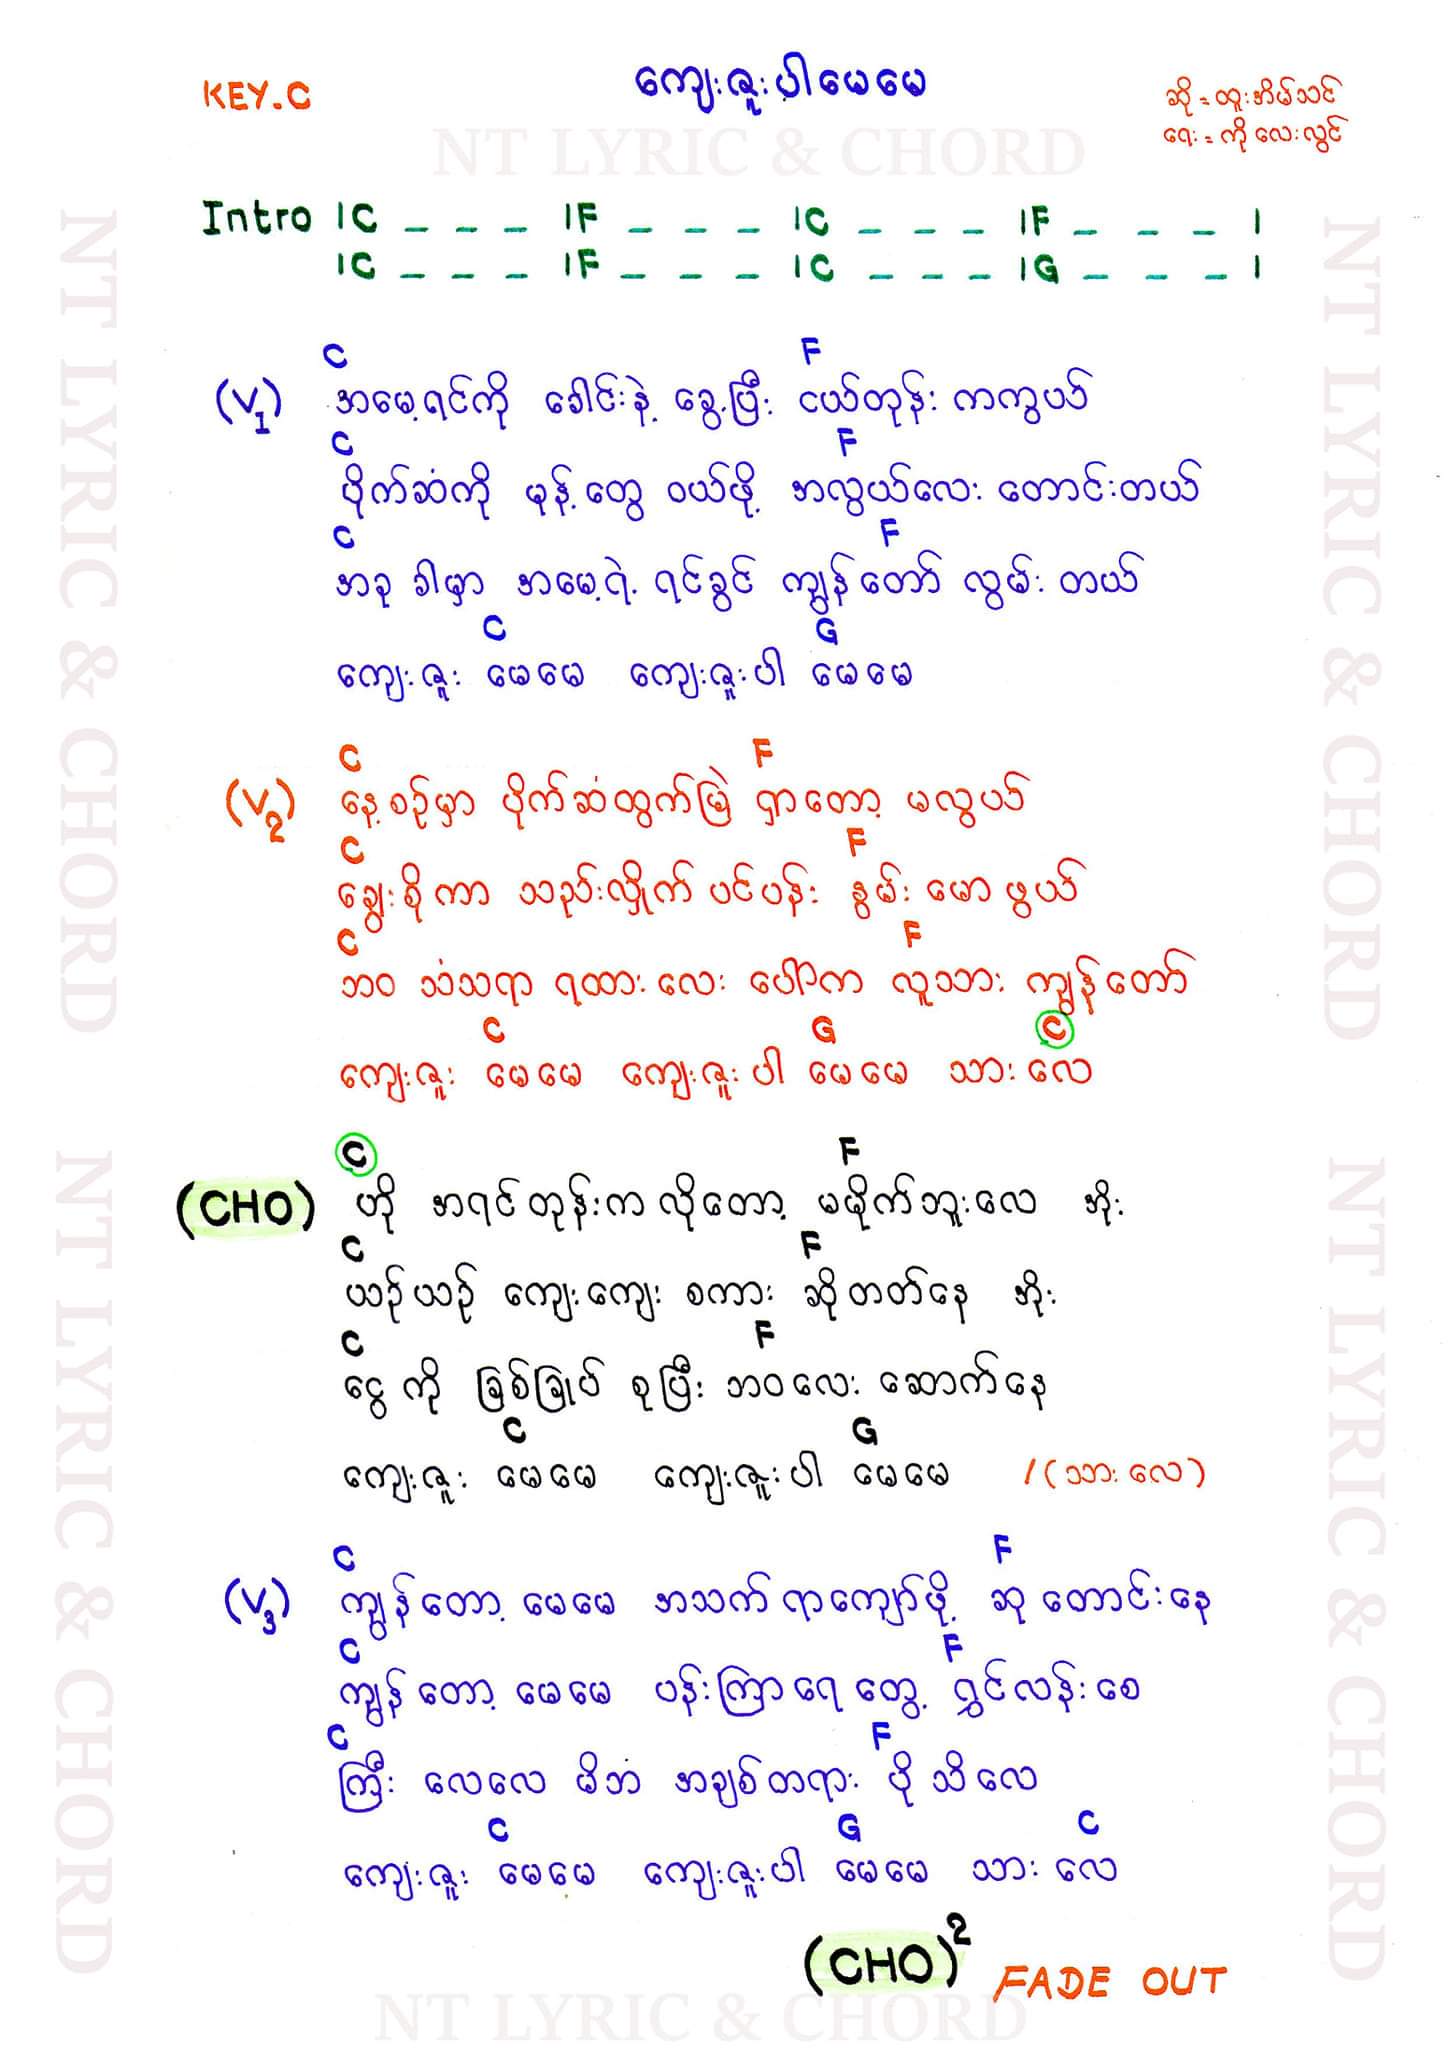 ကျေးဇူးပါမေမေ
KEY.C
ဆို = ထူးအိမ်သင်
ရေး = ကိုလေးလွင်
NT LYRIC & CHORD
Intro |C _ _ _ |F _ _ _ |C _ _ _ |F _ _ _ |
|C _ _ _ |F _ _ _ |C _ _ _ |G _ _ _ |
C F
(V1) အမေ့ရင်ကို ခေါင်းနဲ့ ခွေ့ပြီး ငယ်တုန်း ကကွယ်
C F
ပိုက်ဆံကို မုန့်တွေ ဝယ်ဖို့ အလွယ်လေး တောင်းတယ်
C F
အခု ခါမှာ အမေ့ရဲ့ ရင်ခွင် ကျွန်တော် လွမ်းတယ်
C G
ကျေးဇူး မေမေ ကျေးဇူးပါ မေမေ
C F
(V2) နေ့စဉ်မှာ ပိုက်ဆံထွက်မြဲ ရှာတော့ မလွယ်
C F
ချွေးစိုကာ သည်းလှိုက် ပင်ပန်း နွမ်းမောဖွယ်
C F
ဘဝ သံသရာ ရထားလေး ပေါ်က လူသား ကျွန်တော်
C G C
ကျေးဇူး မေမေ ကျေးဇူးပါ မေမေ သားလေ
C F
(CHO) ဟို အရင်တုန်းကလိုတော့ မမိုက်ဘူးလေ အိုး
C F
ယဉ်ယဉ် ကျေးကျေး စကား ဆိုတတ်နေ အိုး
C F
ငွေကို ခြစ်ခြုပ် စုပြီး ဘဝလေး ဆောက်နေ
C G
ကျေးဇူး မေမေ ကျေးဇူးပါ မေမေ / (သားလေ)
C F
(V3) ကျွန်တော့ မေမေ အသက် ရာကျော်ဖို့ ဆုတောင်းနေ
C F
ကျွန်တော့ မေမေ ပန်းကြာရေတွေ့ ရွှင်လန်းစေ
C F
ကြီးလေလေ မိဘ အချစ်တရား ပိုသိလေ
C G C
ကျေးဇူး မေမေ ကျေးဇူးပါ မေမေ သားလေ
(CHO)2 FADE OUT
NT LYRIC & CHORD
NT LYRIC & CHORD
NT LYRIC & CHORD
NT LYRIC & CHORD
NT LYRIC & CHORD